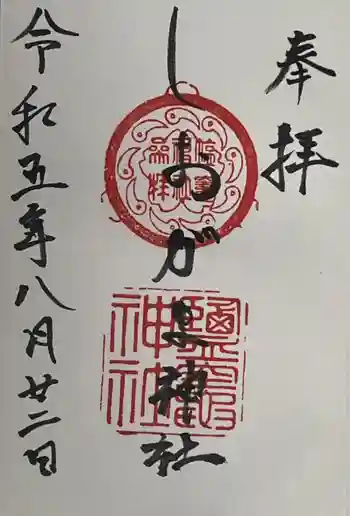 奉拝
しおがま神社
神社
令和五年八月廿二日